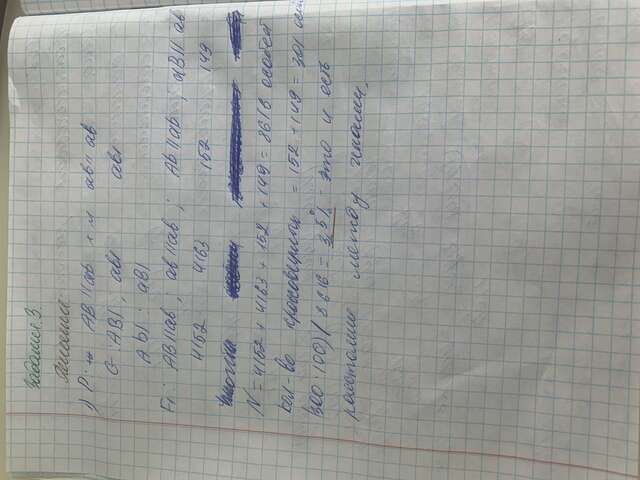 Задание 3.
1) P: ♀ AB||ab × ♂ ab||ab
G: AB|; ab| ab|
Ab|; aB|
F₁: AB||ab; ab||ab; Ab||ab; aB||ab
4152 4163 152 149
N = 4152 + 4163 + 152 + 149 = 8616 особей
Кол-во = 152 + 149 = 301
100)/8616 = 3,5%; это и есть
расстояние между генами.